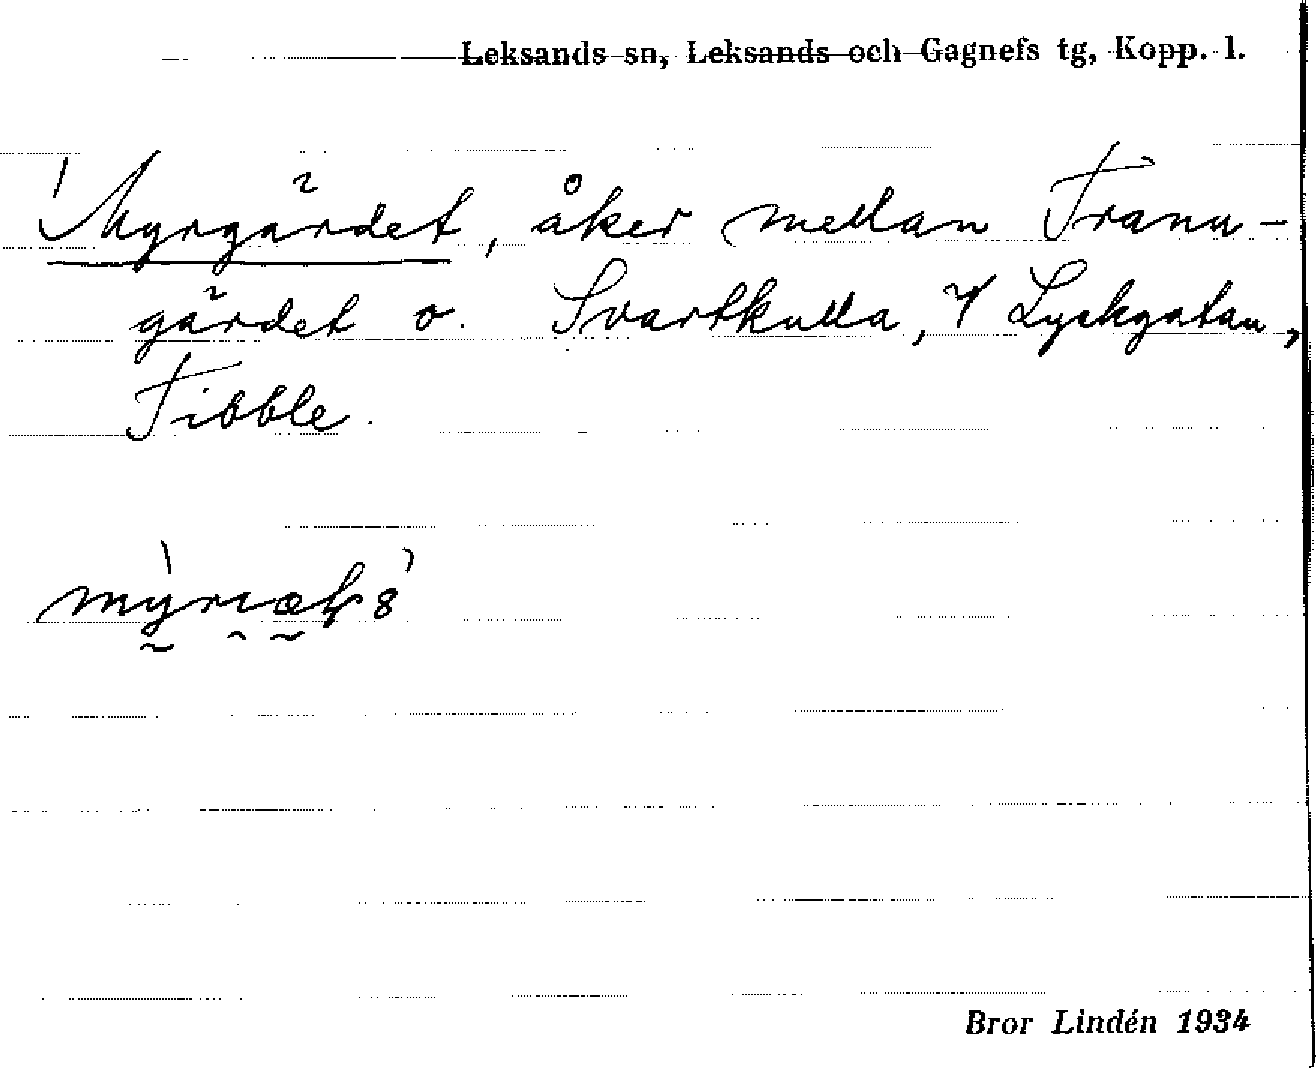 Leksands sn, Leksands och Gagnefs tg, Kopp. l.
Myrgärdet, åker mellan Trana-
gärdet o. Svartkulla, Lyckgatan,
Tibble.
Bror Lindén 1934